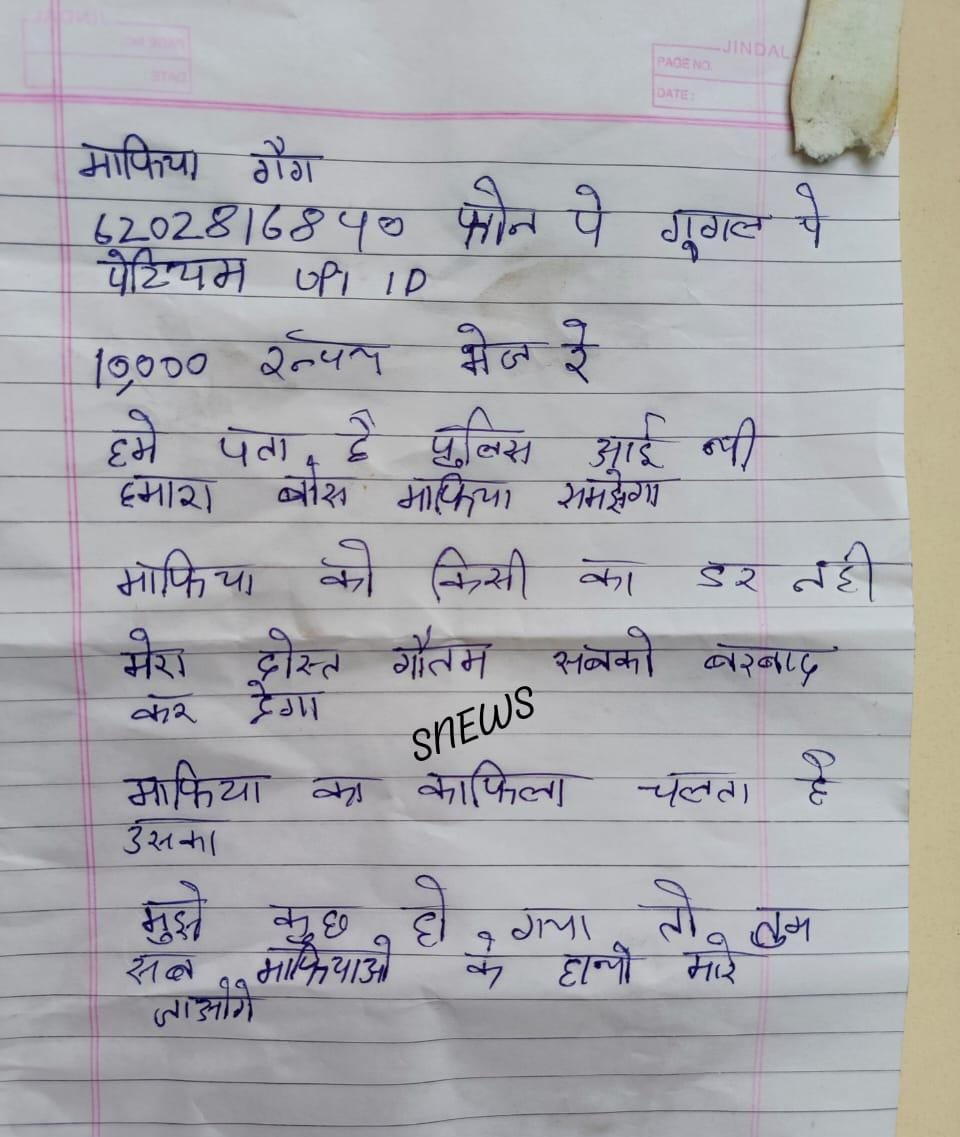 JINDAL
PAGE NO.
DATE:
माफिया गैग
6202816840 फोन पे गूगल पे
पेटियम UPI ID
10,000 भेज रे
हमे पता है पुलिस आई थी
हमारा बोस माफिया समझेगा
माफिया को किसी का डर नही
मेरा दोस्त गौतम सबको बरबाद
कर देगा
SNEWS
माफिया का काफिला चलता है
उसका
मुझे कुछ हो गया तो तुम
सब माफियाओ के हाथो मारे
जाओगे